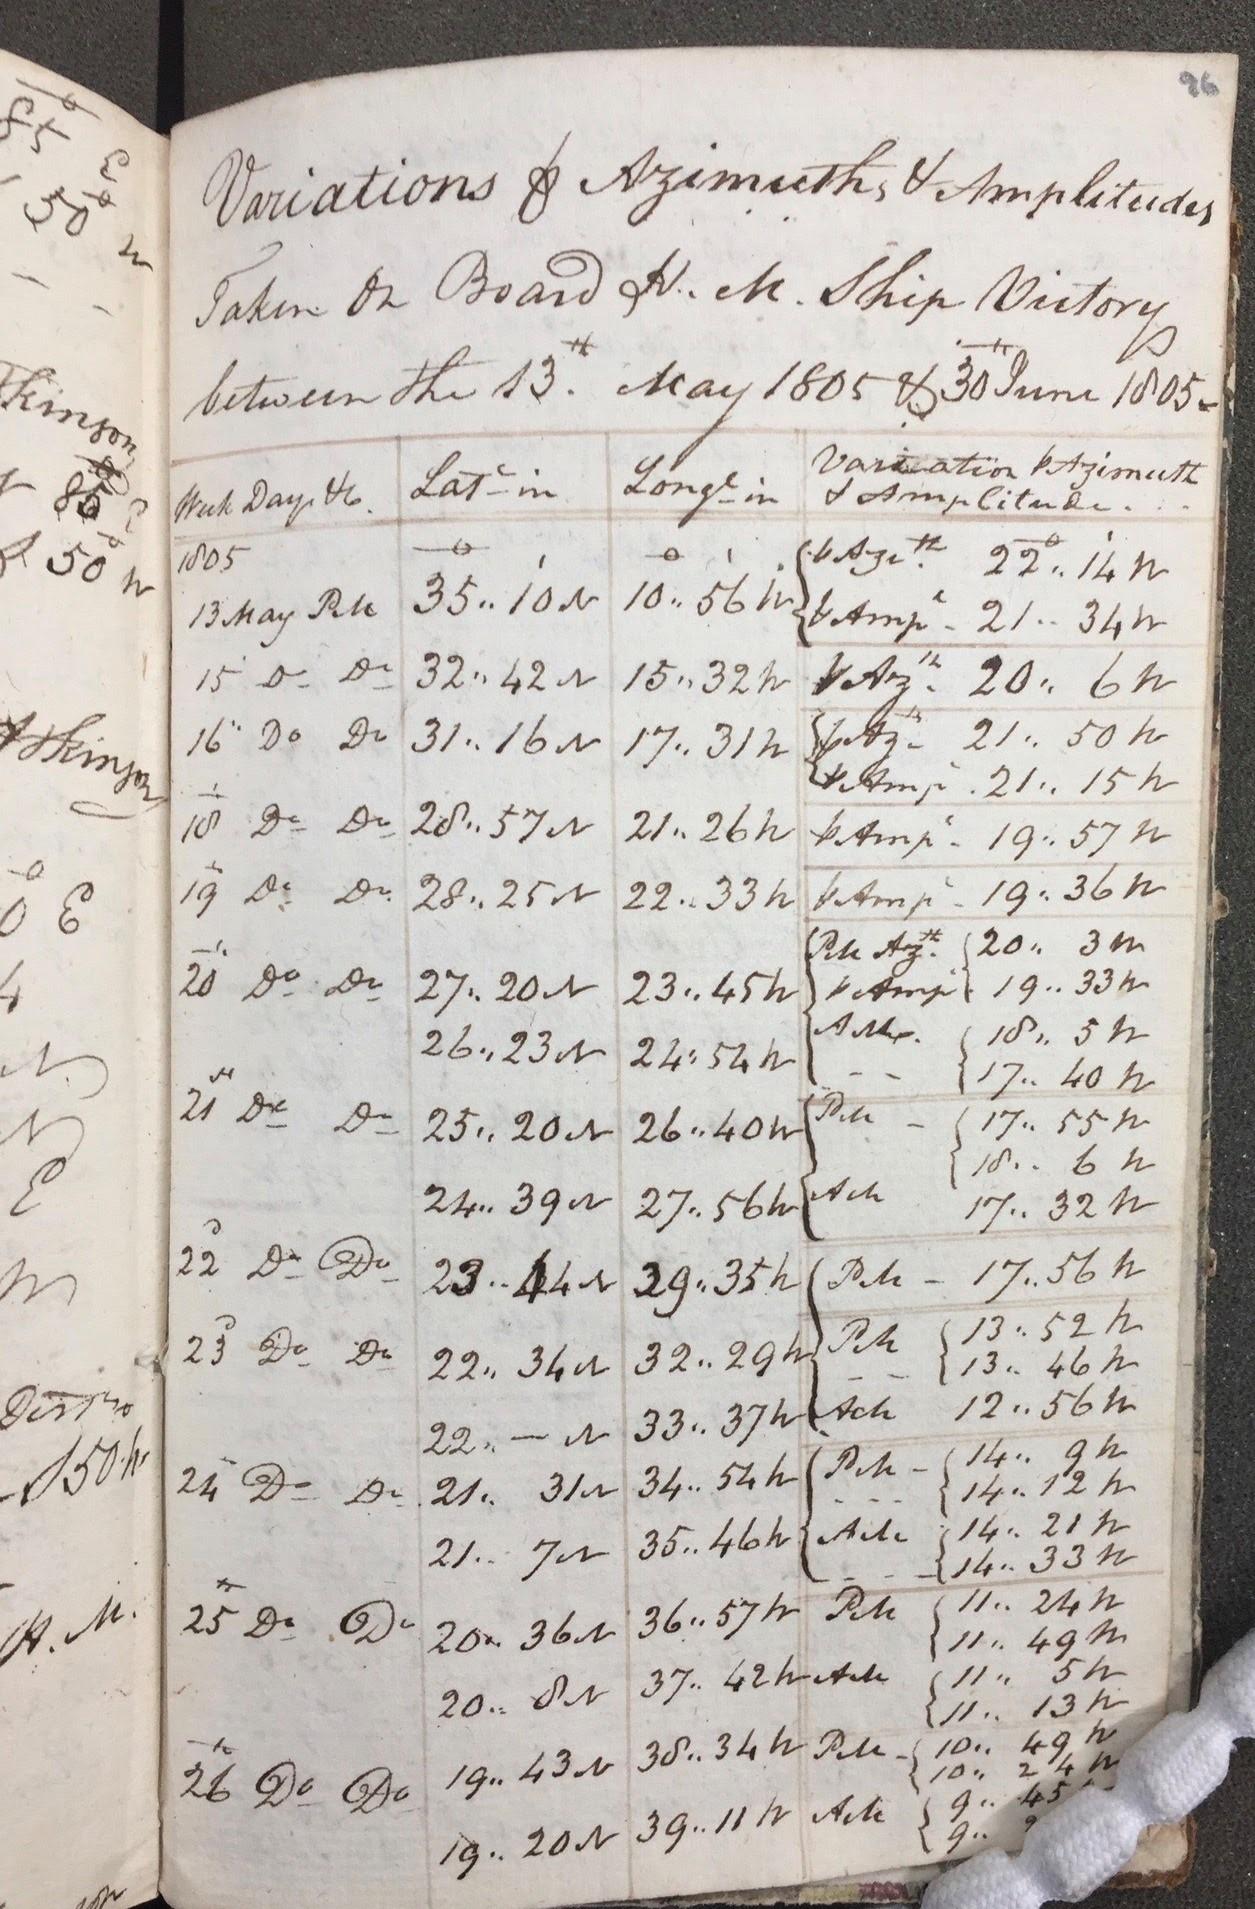 96
Variations & Azimuths, & Amplitudes
Taken On Board H. M. Ship Victory
between the 13th. May 1805 & 30th June 1805
Week Days &c. Latde in Longde in Variation p Azimuth
& Amplitude.
1805 o ' o ' p Azth. 22o.. 14' W
13 May PM 35.. 10 N 10.. 56 W p Ampe - 21.. 34 W
15 Do Do 32.. 42 N 15.. 32 W p Azth. 20.. 6 W
16 Do Do 31.. 16 N 17.. 31 W p Azth 21.. 50 W
p Ampe 21.. 15 W
18 Do Do 28.. 57 N 21.. 26 W p Ampe - 19.. 57 W
19 Do Do 28.. 25 N 22.. 33 W p Ampe - 19.. 36 W
PM Azth. 20.. 3 W
20 Do Do 27.. 20 N 23.. 45 W p Ampe 19.. 33 W
26.. 23 N 24.. 54 W AM. 18.. 5 W
- - 17.. 40 W
21st Do Do 25.. 20 N 26.. 40 W PM - 17.. 55 W
18.. 6 W
24.. 39 N 27.. 56 W AM 17.. 32 W
22d Do Do 23.. 44 N 29.. 35 W PM - 17.. 56 W
23d Do Do 22.. 34 N 32.. 29 W PM 13.. 52 W
- - 13.. 46 W
22.. — N 33.. 37 W AM 12.. 56 W
24 Do Do 21.. 31 N 34.. 54 W PM - 14.. 9 W
- - - 14.. 12 W
21.. 7 N 35.. 46 W AM 14.. 21 W
- - - 14.. 33 W
25th Do Do 20.. 36 N 36.. 57 W PM 11.. 24 W
11.. 49 W
20.. 8 N 37.. 42 W AM 11.. 5 W
11.. 13 W
26th Do Do 19.. 43 N 38.. 34 W PM - 10.. 49 W
10.. 24 W
19.. 20 N 39.. 11 W AM 9.. 45
9..
85 E
50 W
85 E
50 W
Atkinson
E
N
N
E
W
150 W
H. M.